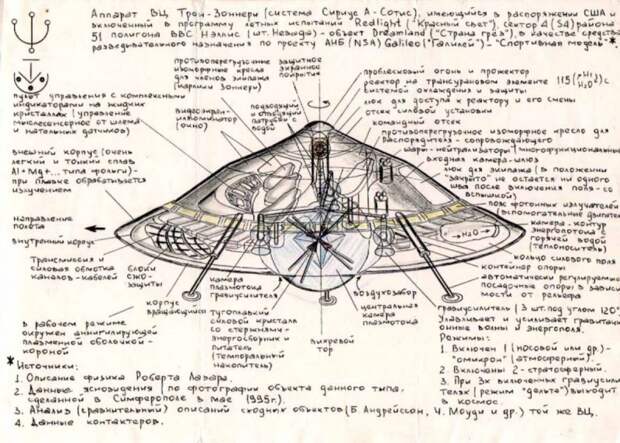 Аппарат ВЦ Трон-Зоннери (система Сириус А-Сотис), имеющийся в распоряжении США и
включенный в программу летных испытаний Redlight ("Красный свет"), сектор 4 (S4) района
51 полигона ВВС Нэллис (шт. Невада) - объект Dreamland ("Страна грёз"), в качестве средства
разведывательного назначения по проекту АНБ (NSA) Galileo ("Галилей") - "Спортивная модель" *
противоперегрузочные
изоморфные кресла
для членов экипажа
(карлики Зоннери)
защитное
экранное
покрытие
проблесковый огонь и прожектор
реактор на трансурановом элементе 115 с
системой охлаждения и защиты
люк для доступа к реактору и его смены
отсек силовой установки
командный отсек
пульт управления с комплексными
индикаторами на жидких
кристаллах (управление
мыслесенсорное от шлема
и нательных датчиков)
видеоэкран-
иллюминатор
(окно)
подводящий
и отводящий
патрубок с
водой
противоперегрузочное изоморфное кресло для
распорядителя - сопровождающего
шары-нейтрализаторы (многофункциональные)
входная камера-шлюз
люк для экипажа (в положении
"закрыто" не остается ни одного
шва после включения пояс- со
вспышкой)
внешний корпус (очень
легкий и тонкий сплав
Al+Mg+... типа фольги) -
при плавке обрабатывается
излучением
пояс фотонных излучателей
(вспомогательные двигатели)
камера-контур
энергопотока
горячей водой
(теплоноситель)
направление
полёта
внутренний корпус
H₂O
кольцо силового поля
контейнер опоры
Трансмиссия и
силовая обмотка
каналов-кабелей
блоки
СЖО-
защиты
автоматически регулируемые
посадочные опоры в зависи-
мости от рельефа
камера
плазмотока
гравиусилителя
воздухозабор
центральная
камера
плазмотока
корпус
вращающийся
гравиусилитель (3 шт. под углом 120°)
Улавливает и усиливает гравитаци-
онные волны и энергополя.
тугоплавкий
силовой кристалл
со стержнями-
энергосборник и
питатель
(темпоральный
накопитель)
вихревой
тор
в рабочем режиме
окружен аннигилирующей
плазменной оболочкой-
короной
Режимы:
1. Включен 1 (носовой или др.) -
"омикрон" (атмосферный).
2. Включены 2 - стратосферный.
3. При 3х включенных гравиусили-
телях (режим "дельта") выходит
в космос.
* Источники:
1. Описание физика Роберта Лазара.
2. Данные ясновидения по фотографии объекта данного типа,
сделанной в Симферополе в мае 1995г.
3. Анализ (сравнительный) описаний сходных объектов (Б. Андрейссон, Ч. Моуди и др.) той же ВЦ.
4. Данные контактеров.